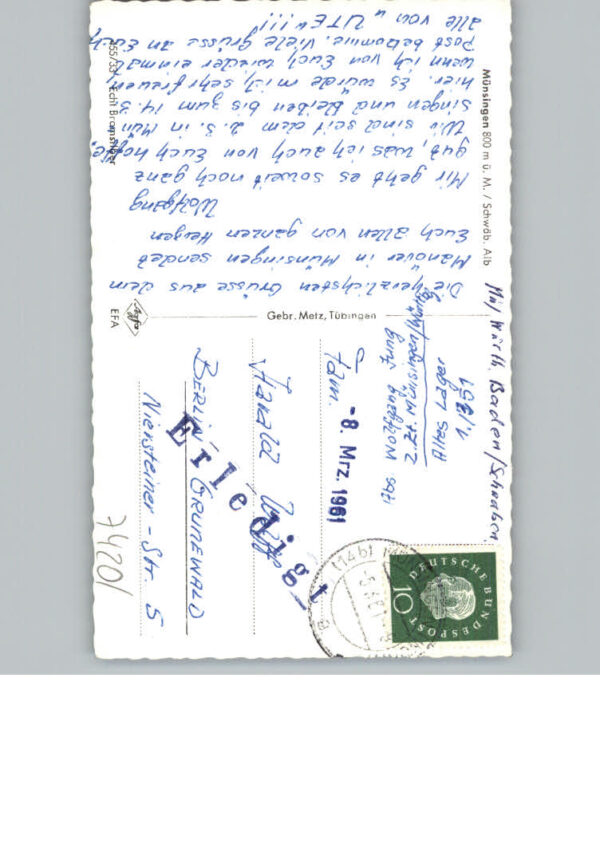 Münsingen 800 m ü. M. / Schwäb. Alb
Die herzlichsten Grüsse aus dem
Manöver in Münsingen sendet
Euch allen von ganzen Herzen
Wolfgang
Mir geht es soweit noch ganz
gut, was ich auch von Euch hoffe.
Wir sind seit dem 2.3. in Mün
singen und bleiben bis zum 14.3
hier. Es würde mich sehr freuen
wenn ich von Euch wieder einmal
Post bekomme. Viele Grüsse an Euch
alle von "UTE"!!!
555/33 Echt Bromsilber
Gebr. Metz, Tübingen
Agfa
EFA
Württ. Baden/Schwaben.
Abs. Wolfgang
z.Zt. Münsingen/Württ
Altes Lager
1./351
-8. Mrz. 1961
Fam.
Harald
BERLIN GRUNEWALD
Niersteiner-Str. 5
Erledigt
7420/
(14b)
DEUTSCHE BUNDESPOST
10